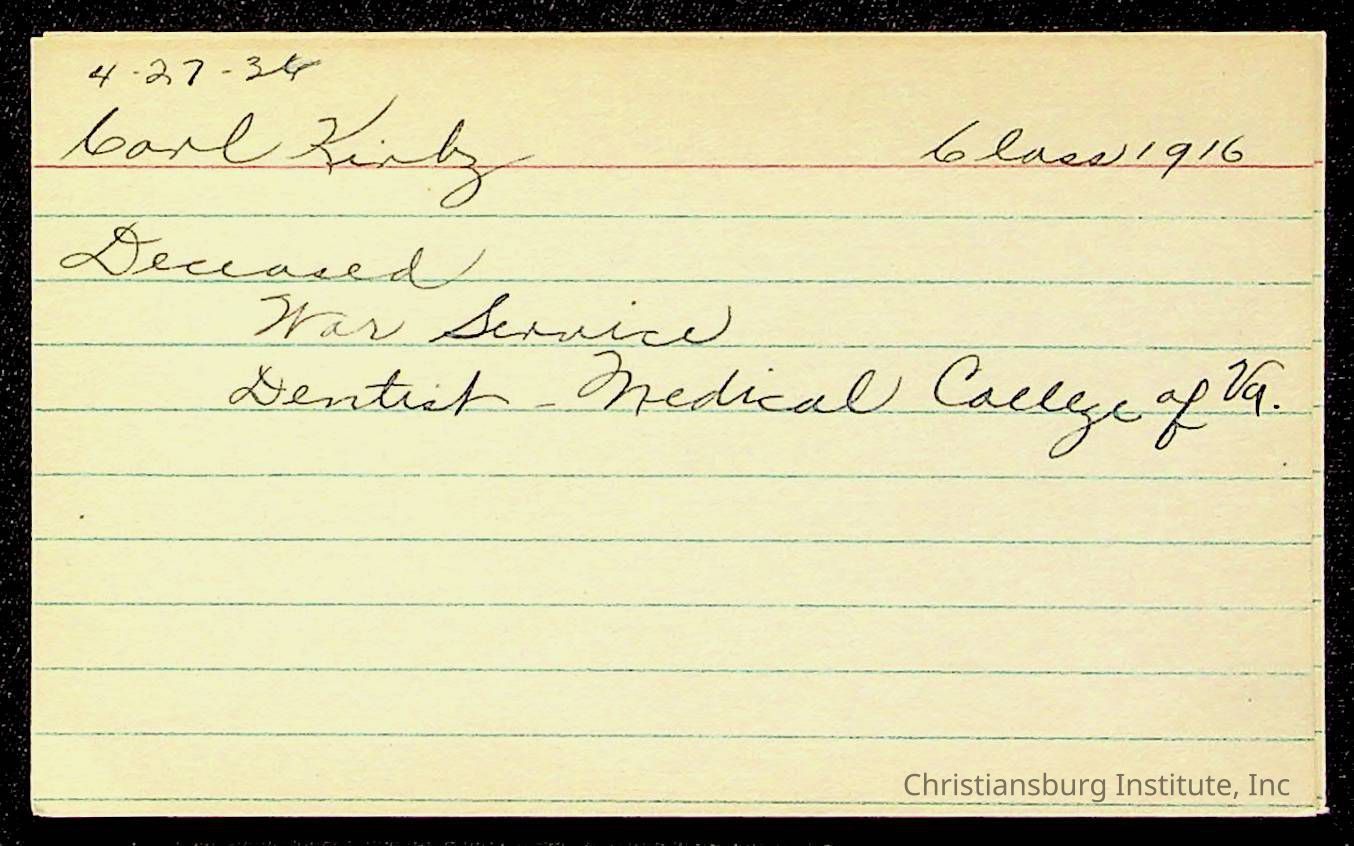 4-27-36
Carl Kirby Class 1916
Deceased
War Service
Dentist - Medical College of Va.
Christiansburg Institute, Inc